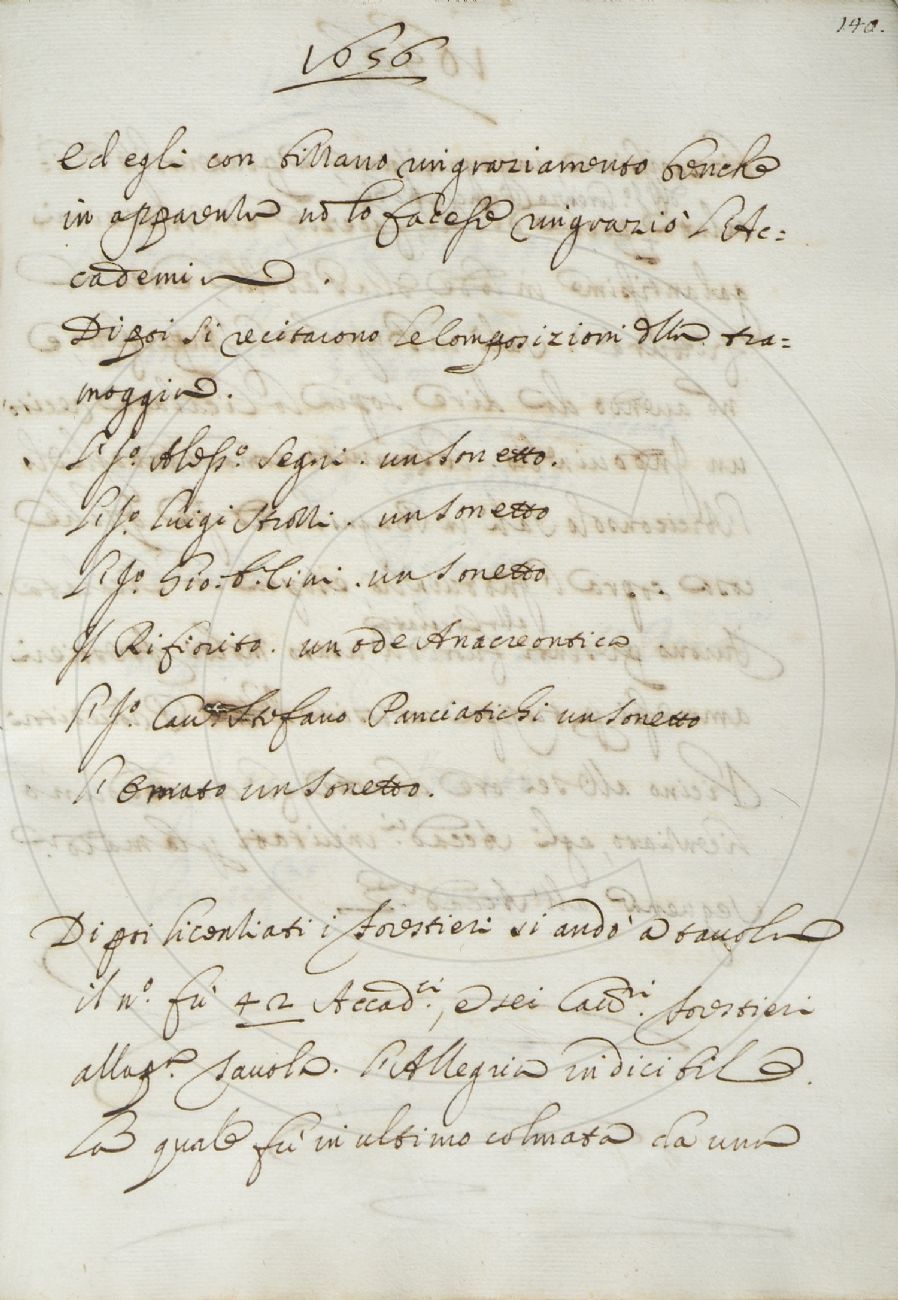 140.
1656
Ed egli con ringraziamento benche
in apparenza nō lo facesse ringraziò l'Ac=
cademia.
Di poi si recitarono le Composizioni della tra=
moggia.
Il Sr. Aless.o Segni. un Sonetto.
Il Sr. Luigi Strozzi. un Sonetto
Il Sr. Gio: b.a Cini. un Sonetto
Il Rifiorito. un ode Anacreontica
Il Sr. Cav.re Stefano Panciatichi un Sonetto
L'Ornato un Sonetto.
Di poi licenziati i forestieri si andò a tavola
il n.o fù 42 Accad.ci, e sei Cav.ri forestieri
alla p.a tavola. L'Allegria indicibile.
La quale fù in ultimo colmata da una